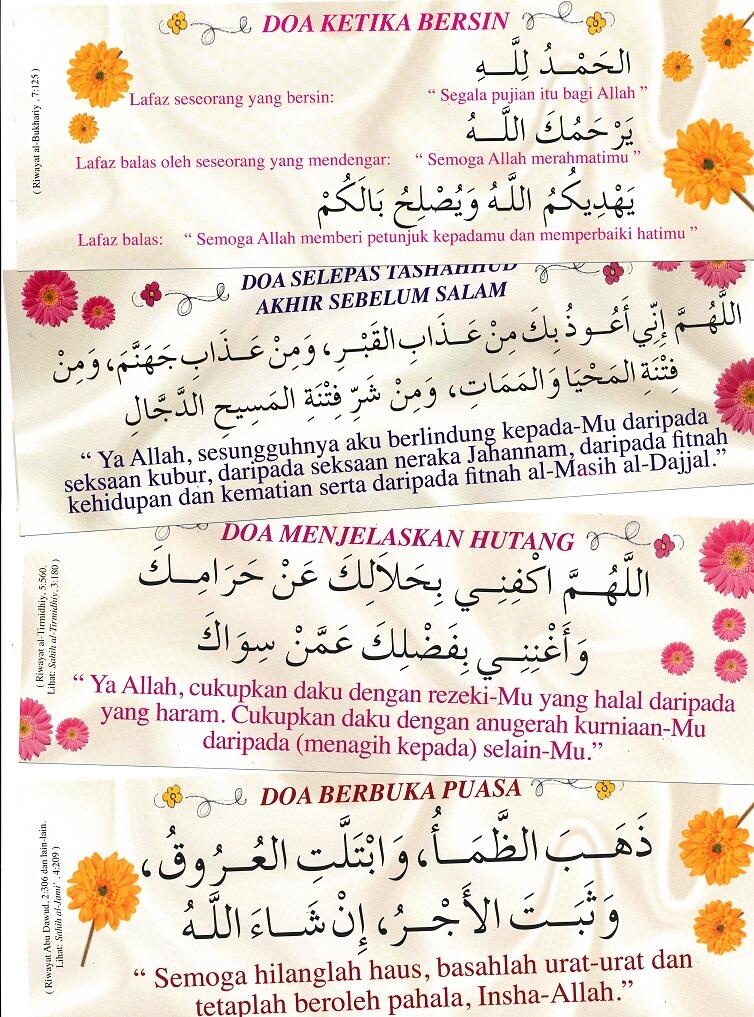 DOA KETIKA BERSIN
الحَمْـدُ لِلَّـــهِ
Lafaz seseorang yang bersin: “ Segala pujian itu bagi Allah ”
يَرْحَمُكَ اللَّـــهُ
Lafaz balas oleh seseorang yang mendengar: “ Semoga Allah merahmatimu ”
يَهْدِيكُمُ اللَّـهُ وَيُصْلِحُ بَالَكُمْ
Lafaz balas: “ Semoga Allah memberi petunjuk kepadamu dan memperbaiki hatimu ”
( Riwayat al-Bukhariy , 7:125 )
DOA SELEPAS TASHAHHUD
AKHIR SEBELUM SALAM
اللَّهُـــمَّ إِنِّي أَعُـــوذُ بِكَ مِنْ عَـذَابِ القَبْـــرِ، وَمِنْ عَـــذَابِ جَهَنَّمَ، وَمِنْ
فِتْنَةِ المَحْيَا وَالمَمَاتِ، وَمِنْ شَرِّ فِتْنَةِ المَسِيحِ الدَّجَّالِ
“ Ya Allah, sesungguhnya aku berlindung kepada-Mu daripada
seksaan kubur, daripada seksaan neraka Jahannam, daripada fitnah
kehidupan dan kematian serta daripada fitnah al-Masih al-Dajjal.”
DOA MENJELASKAN HUTANG
اللَّهُـــمَّ اكْفِنِـــي بِحَلاَلِكَ عَنْ حَرَامِـــكَ
وَأَغْنِنِـــي بِفَضْلِكَ عَمَّنْ سِوَاكَ
( Riwayat al-Tirmidhiy, 5:560.
Lihat: Sahih al-Tirmidhiy, 3:180 )
“ Ya Allah, cukupkan daku dengan rezeki-Mu yang halal daripada
yang haram. Cukupkan daku dengan anugerah kurniaan-Mu
daripada (menagih kepada) selain-Mu.”
DOA BERBUKA PUASA
ذَهَـــبَ الظَّمَـــأُ، وَابْتَلَّتِ العُـــرُوقُ،
وَثَبَـــتَ الأَجْـــرُ، إِنْ شَـــاءَ اللَّـهُ
( Riwayat Abu Dawud, 2:306 dan lain-lain.
Lihat: Sahih al-Jami' , 4:209 )
“ Semoga hilanglah haus, basahlah urat-urat dan
tetaplah beroleh pahala, Insha-Allah.”